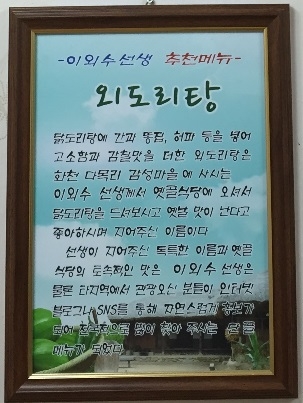 -이외수선생 추천메뉴-
외도리탕
닭도리탕에 간과 똥집, 허파 등을 넣어
고소함과 감칠맛을 더한 외도리탕은
화천 다목리 감성마을에 사시는
이외수 선생께서 옛골식당에 오셔서
닭도리탕을 드셔보시고 옛날 맛이 난다고
좋아하시며 지어주신 이름이다.
선생이 지어주신 독특한 이름과 옛골
식당의 토속적인 맛은 이외수 선생은
물론 타지역에서 관광오신 분들이 인터넷
블로그나 SNS를 통해 자연스럽게 홍보가
되어 전국적으로 많이 찾아 주시는
메뉴가 되었다.